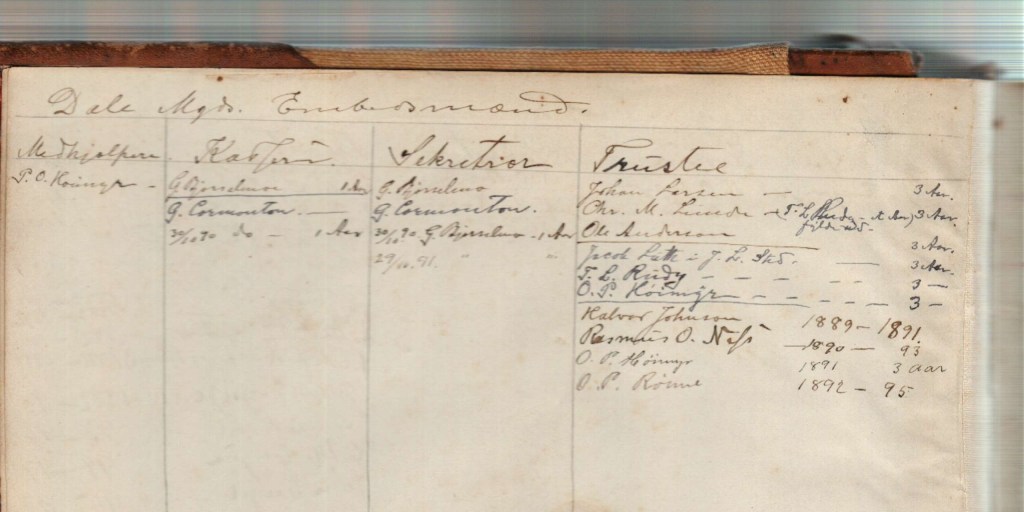 Dale Mgds. Embedsmænd.
Medhjelpere. Kasserer. Sekretær Trustee
P. O. Høimyr - G. Bjornslmoe 1 Aar G. Bjornslmo Johan Larsen — 3 Aar.
G. Cormonton. — G. Cormonton. Chr. M. Lunde - T. L. Rudy - 3 Aar.
30/10 90 do - 1 Aar 30/10 90 G. Bjornslmo - 1 Aar Ole Anderson
29/10. 91. " " Jacob J. L. Sted. — 3 Aar.
T. L. Rudy - - - - - 3 Aar.
O. P. Høimyr - - - - - 3 —
3 —
Halvor Johnson 1889 - 1891.
Rasmus O. Ness — 1890 — 93
O. P. Høimyr 1891 3 aar
O. P. Rønne 1892 - 95